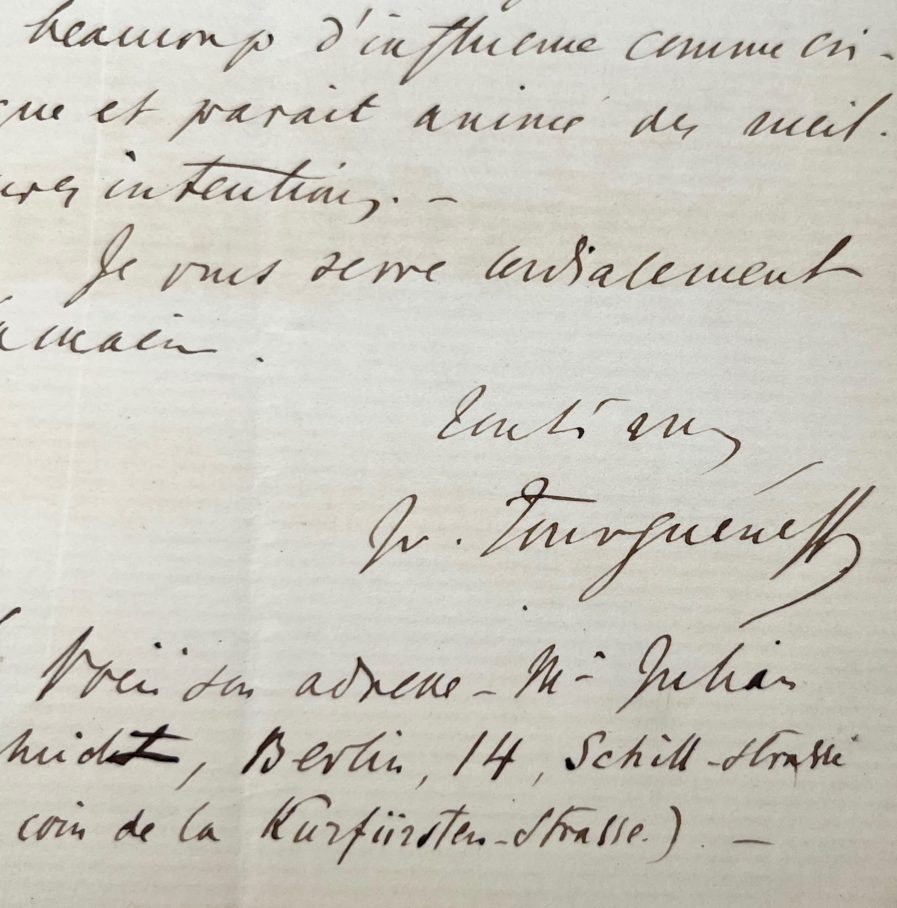 beaucoup d'influence comme cri-
que et parait animé des meil-
ures intentions. –
Je vous serre cordialement
la main.
Tout à vous
Iv. Tourguéneff
Voici son adresse – Mr Julian
hmidt, Berlin, 14, Schill-strasse
coin de la Kurfürsten-Strasse.) –